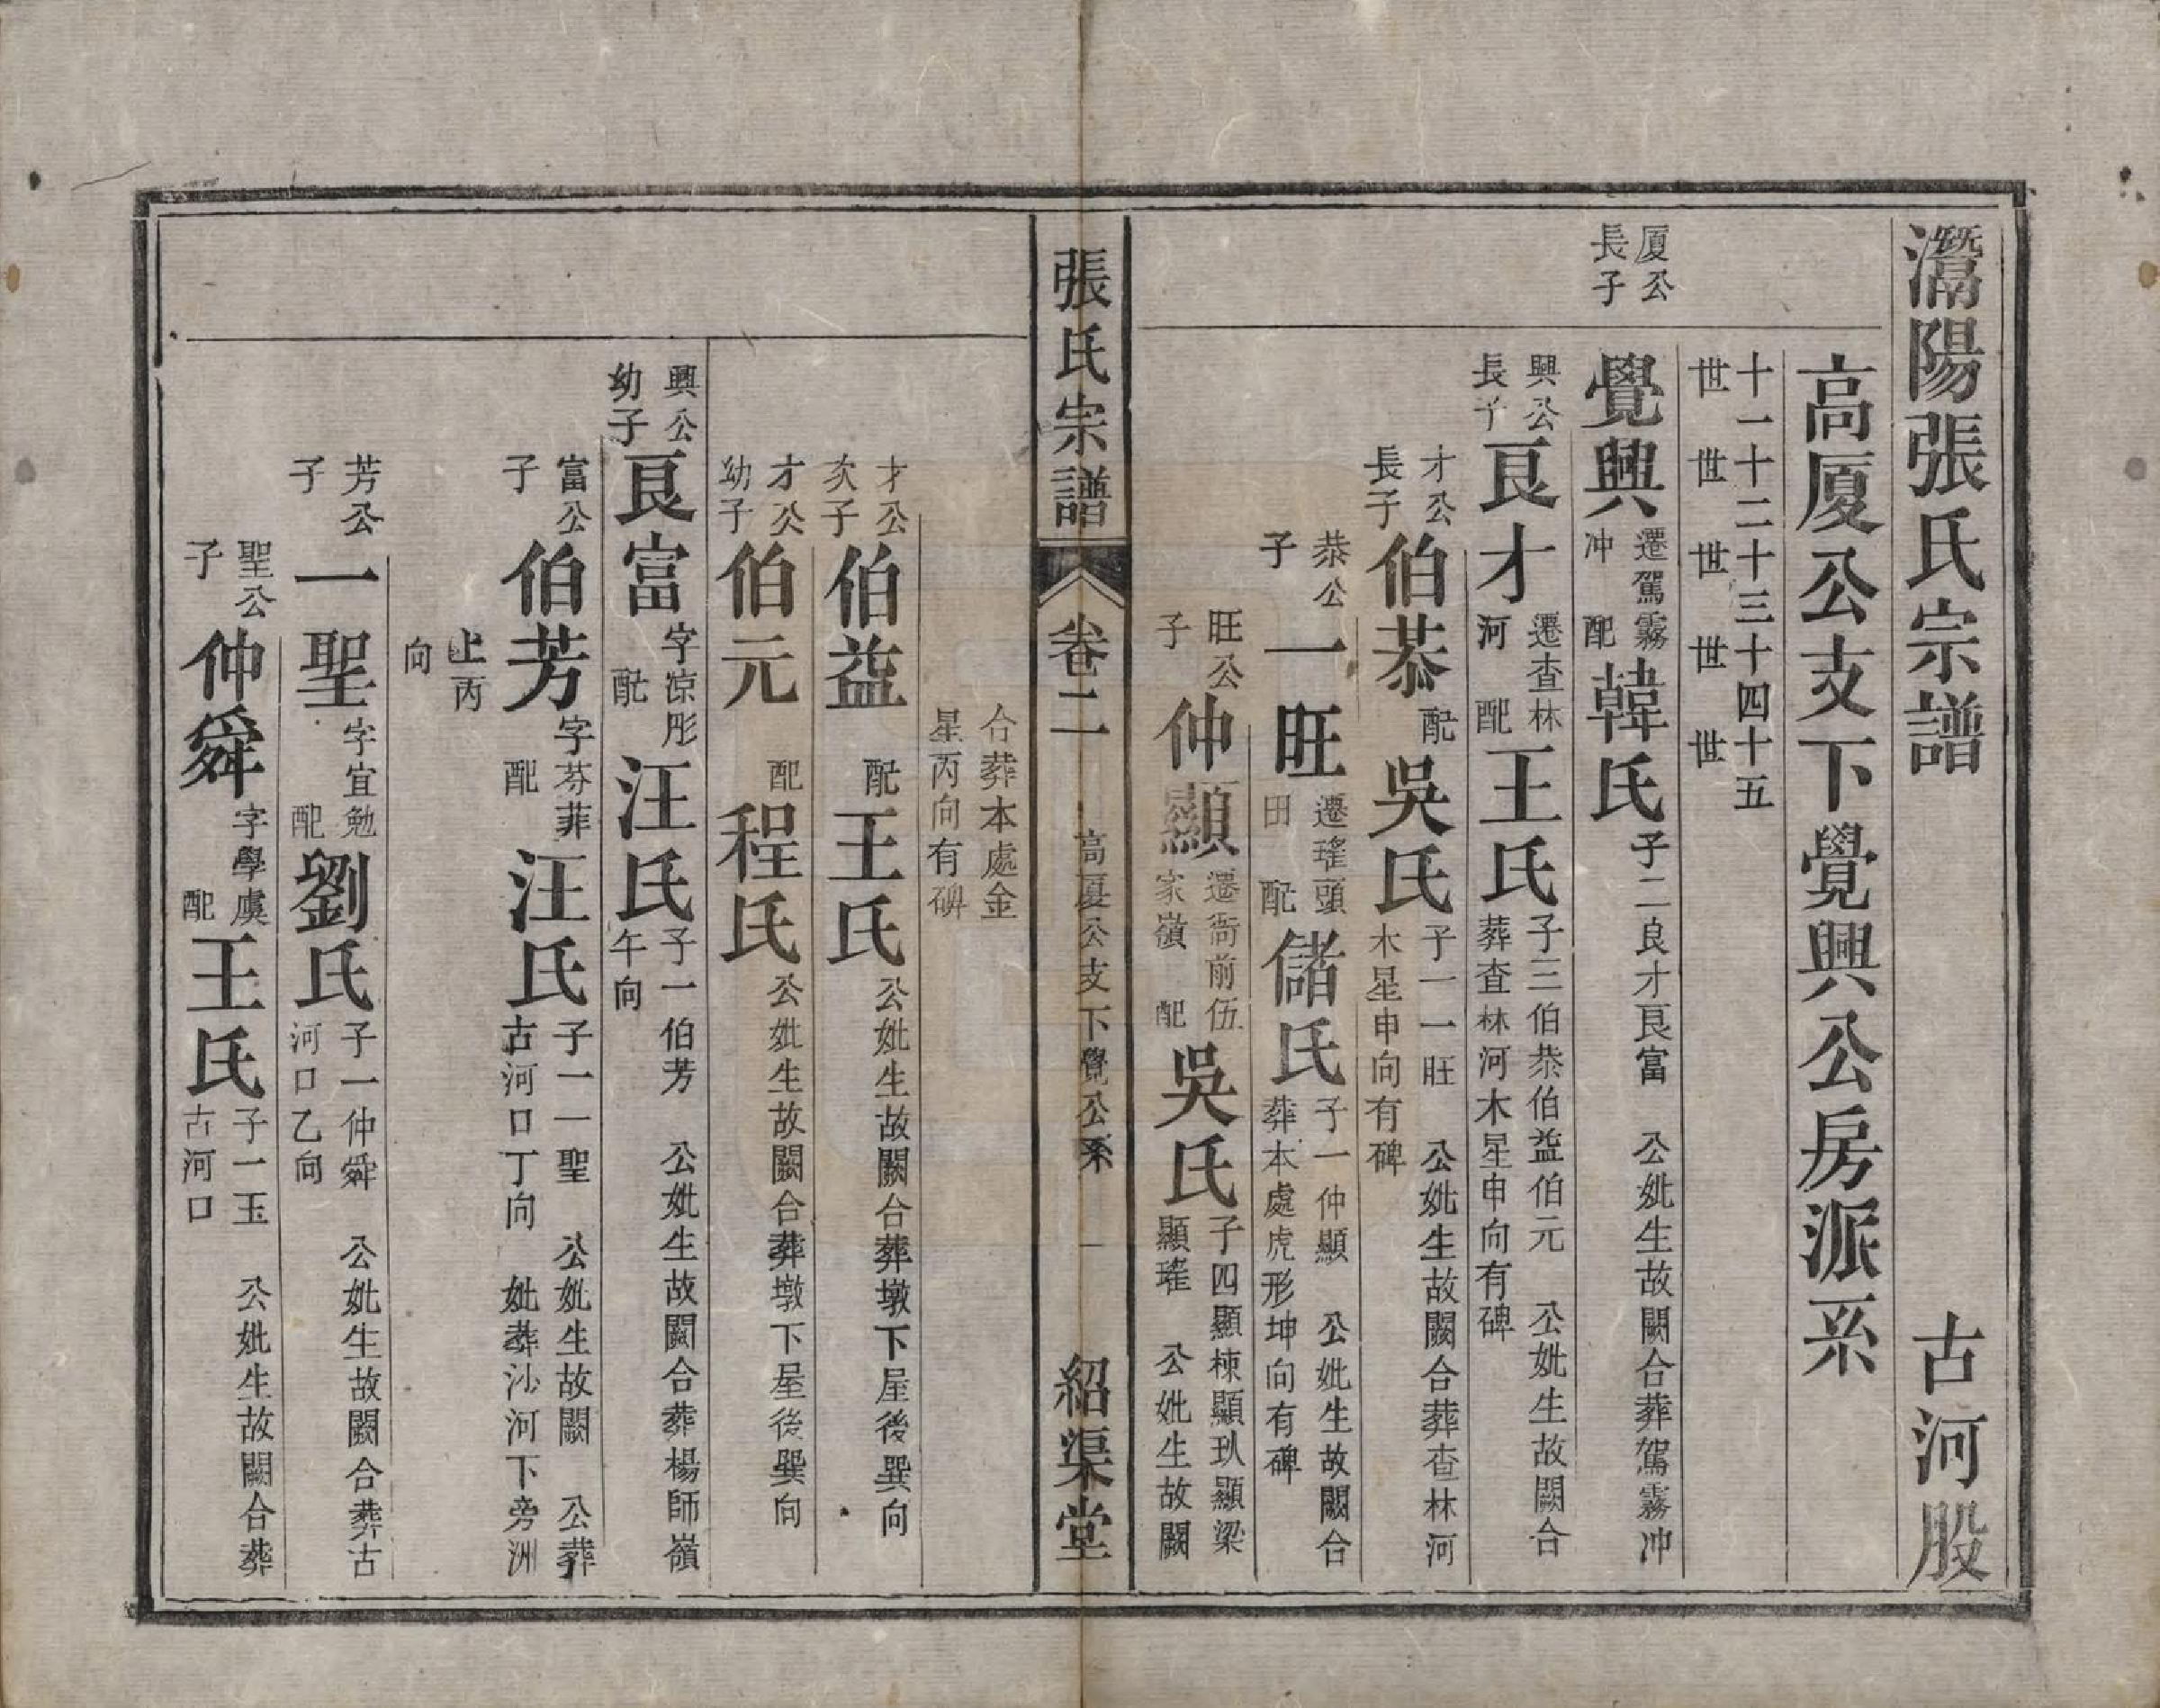 灊陽張氏宗譜　古河股
高厦公支下覺興公房派系
十一世　十二世　十三世　十四世　十五世
厦公長子
覺興　遷駕霧冲　配韓氏　子二良才良富　公妣生故闕合葬駕霧冲
興公長子　良才　遷查林河　配王氏　子三伯恭伯益伯元　公妣生故闕合葬查林河木星申向有碑
才公長子　伯恭　配吳氏　子一一旺　公妣生故闕合葬查林河木星申向有碑
恭公子　一旺　遷瑤頭田　配儲氏　子一仲顯　公妣生故闕合葬本處虎形坤向有碑
旺公子　仲顯　遷衙前伍家嶺　配吳氏　子四顯棟顯玖顯梁顯瑤　公妣生故闕
張氏宗譜　卷二　高厦公支下覺公系　一　紹渠堂
合葬本處金星丙向有碑
才公次子　伯益　配王氏　公妣生故闕合葬墩下屋後巽向
才公幼子　伯元　配程氏　公妣生故闕合葬墩下屋後巽向
興公幼子　良富　字凉彤　配汪氏　子一伯芳　公妣生故闕合葬楊師嶺午向
富公子　伯芳　字芬菲　配汪氏　子一一聖　公妣生故闕　公葬古河口丁向　妣葬沙河下旁洲上丙向
芳公子　一聖　字宜勉　配劉氏　子一仲舜　公妣生故闕合葬古河口乙向
聖公子　仲舜　字學虞　配王氏　子一玉　公妣生故闕合葬古河口